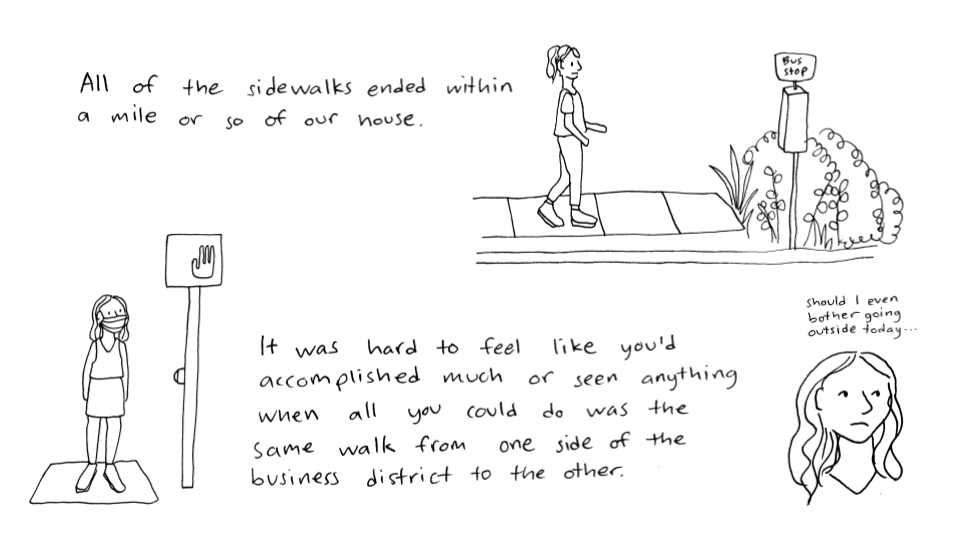 All of the sidewalks ended within
a mile or so of our house.
Bus
stop
It was hard to feel like you'd
accomplished much or seen anything
when all you could do was the
same walk from one side of the
business district to the other.
should I even
bother going
outside today...